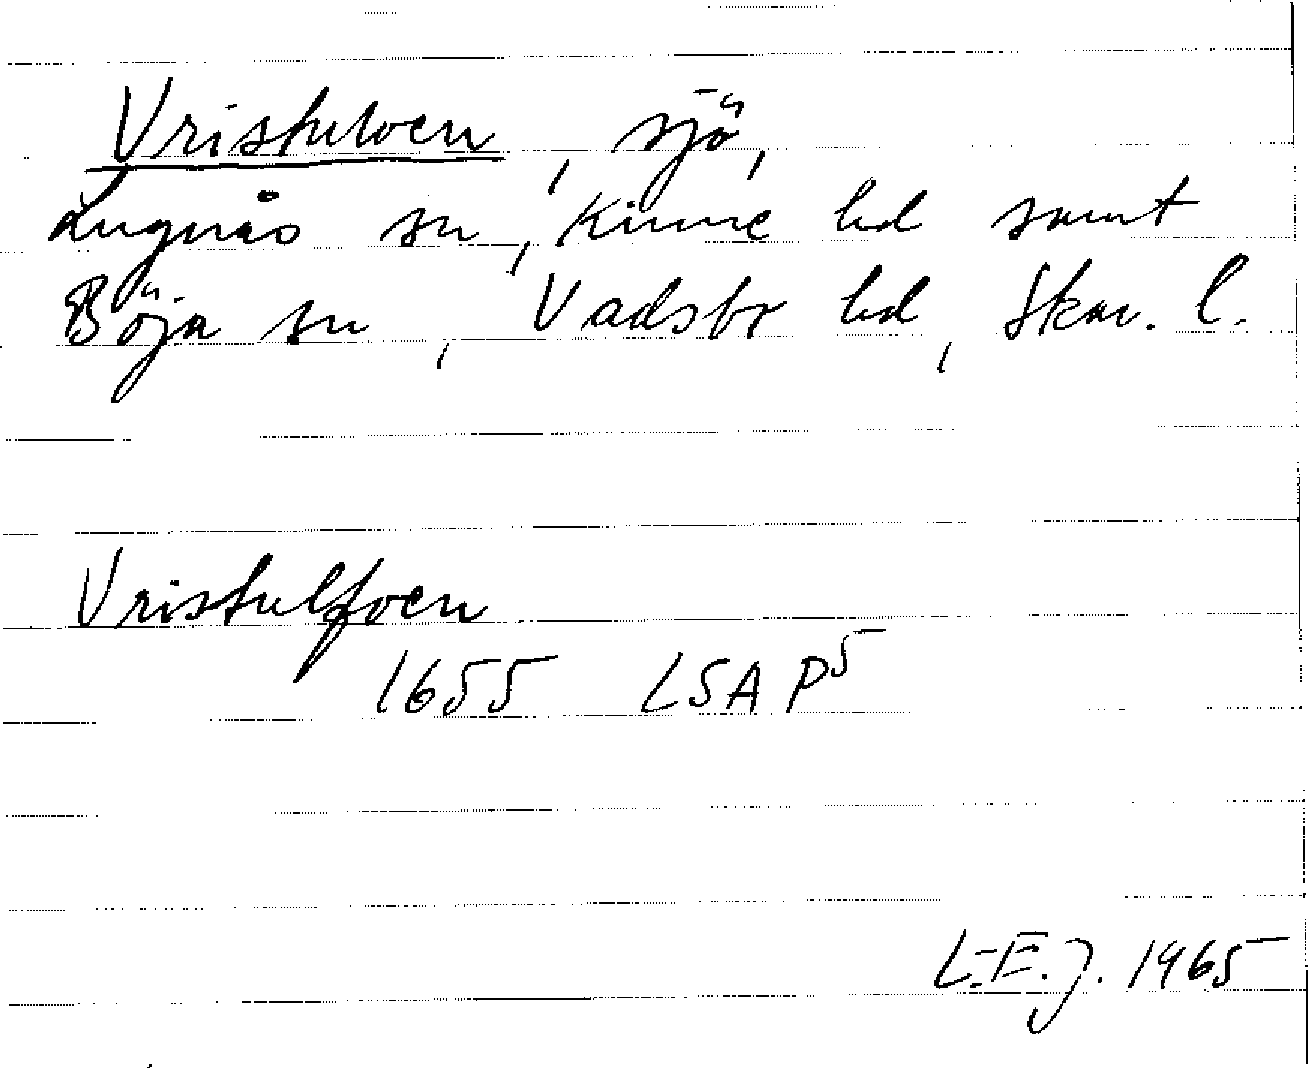 Vristulven, sjö,
Lugnås sn, Kinne hd samt
Böja sn, Vadsbo hd, Skar. l.
Vristulfven
1655 LSA P5
L-E. J. 1965